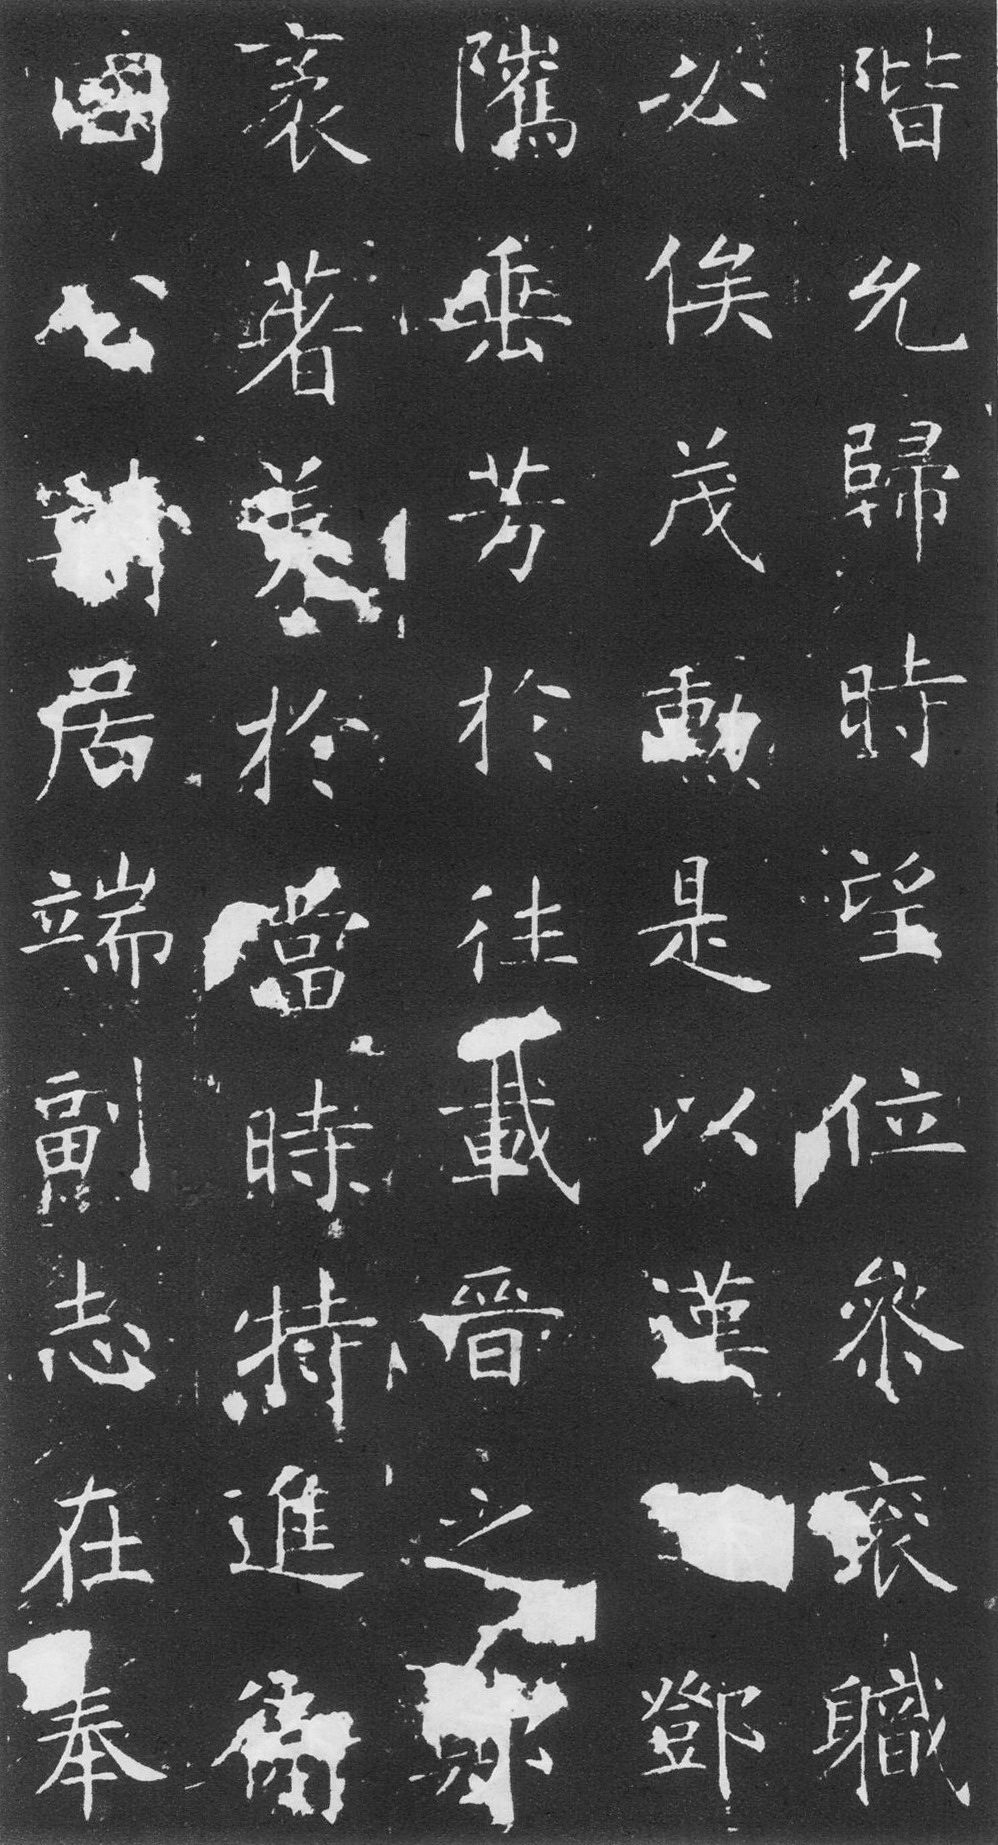 階允歸時望位參袞職
必俟茂勳是以漢鄧
隲垂芳於往載晉之
裒著美於當時特進衛
國公居端副志在奉